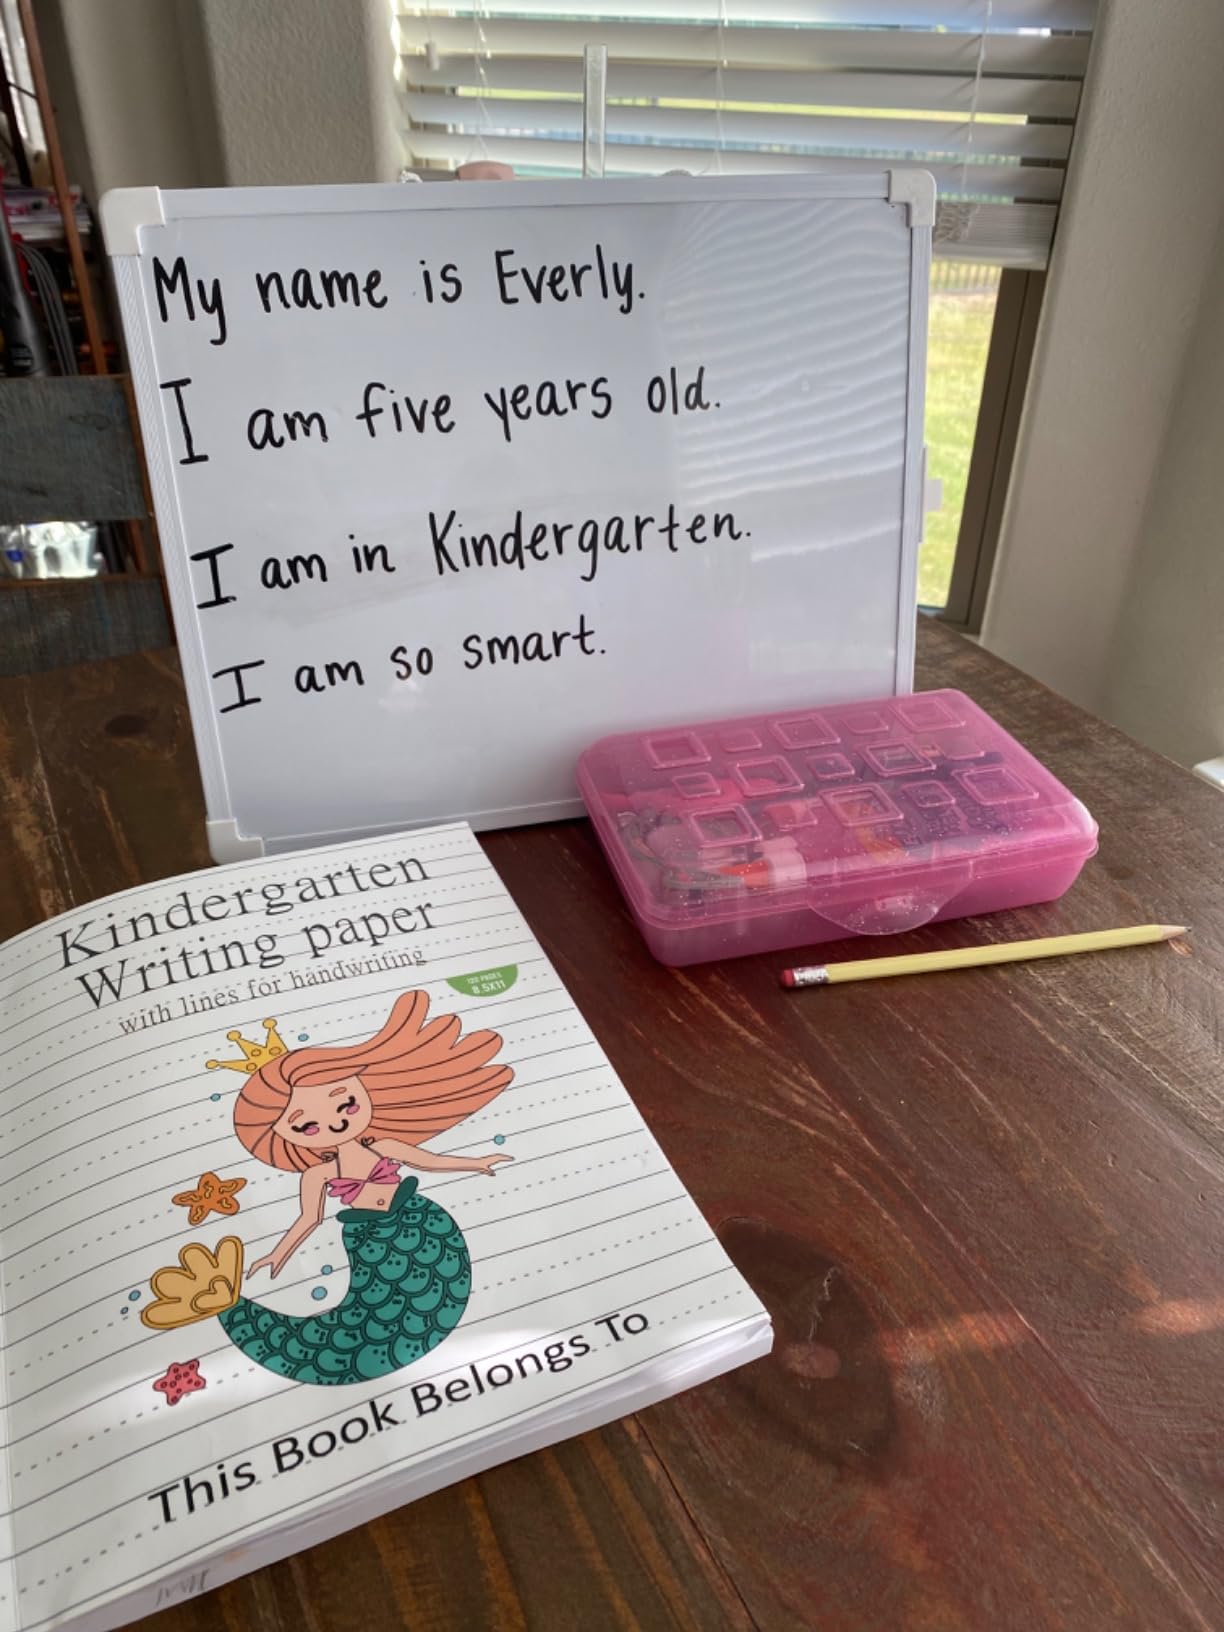 My name is Everly.
I am five years old.
I am in Kindergarten.
I am so smart.
Kindergarten
Writing paper
with lines for handwriting
120 PAGES
8.5X11
This Book Belongs To